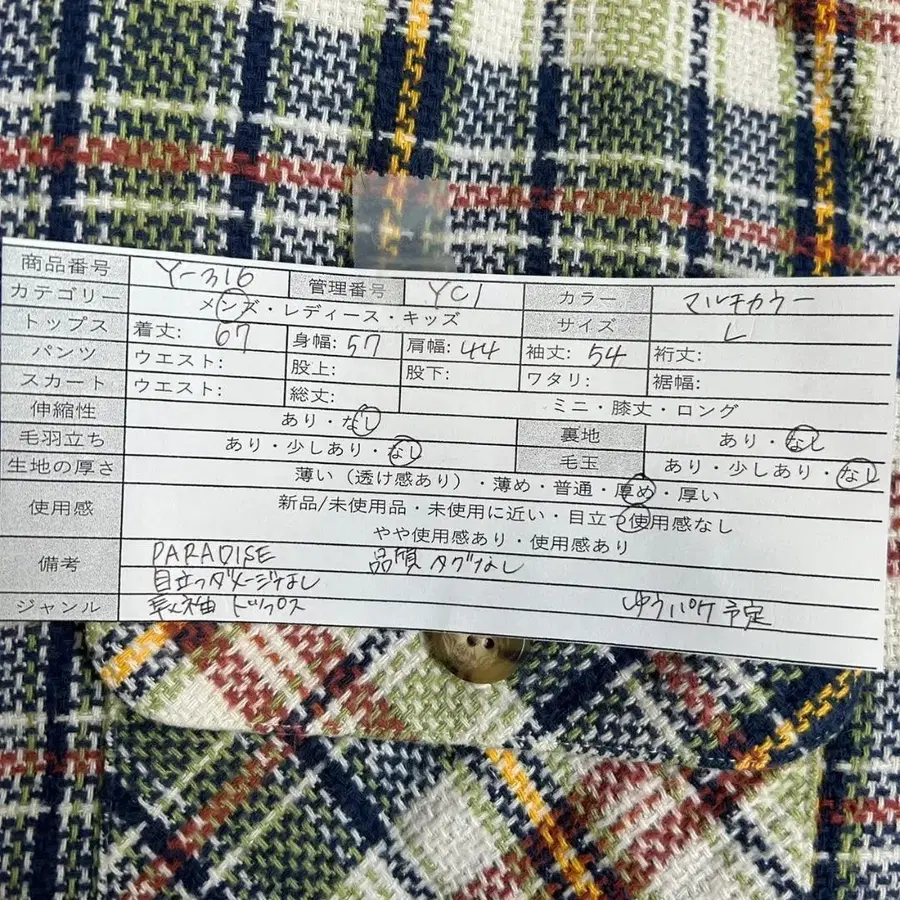 商品番号 Y-316 管理番号 YC1 カラー マルチカラー
カテゴリー メンズ・レディース・キッズ サイズ L
トップス 着丈: 67 身幅: 57 肩幅: 44 袖丈: 54 裄丈:
パンツ ウエスト: 股上: 股下: ワタリ: 裾幅:
スカート ウエスト: 総丈: ミニ・膝丈・ロング
伸縮性 あり・なし 裏地 あり・なし
毛羽立ち あり・少しあり・なし 毛玉 あり・少しあり・なし
生地の厚さ 薄い（透け感あり）・薄め・普通・厚め・厚い
使用感 新品/未使用品・未使用に近い・目立つ使用感なし
やや使用感あり・使用感あり
備考 PARADISE 品質タグなし
目立つダメージなし
ジャンル 長袖 トップス ゆうパケ予定